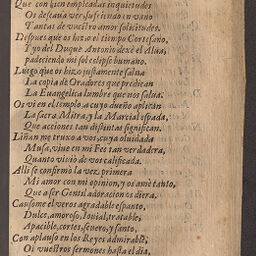 Que con bien empleadas inquietudes
Os deseaua ver, sufriendo en vano
Tantas de vuestro amor solicitudes.
Despues que os hizo el tiempo Cortesano,
Y yo del Duque Antonio dexè el Alua,
padeciendo mi sol eclipse humano.
Luego que os hizo justamente salua
La copia de Oradores que predican
La Euangelica lumbre que nos salua.
Os vi en el templo a cuyo dueño aplican
La sacra Mitra, y la Marcial espada,
Que acciones tan distintas significan.
Liñan me truxo a vos, cuya oluidada
Musa, viue en mi Fee tan verdadera,
Quanto viuio de vos calificada.
Alli se confirmò la vez primera
Mi amor con mi opinion, y os amè tanto,
Que a ser Gentil adoracion os diera.
Causome el veros agradable espanto,
Dulce, amoroso, Iouial, tratable,
Apacible, cortes, seuero, y santo,
Con aplauso en los Reyes admirable,
Oi vuestros sermones hasta el dia,